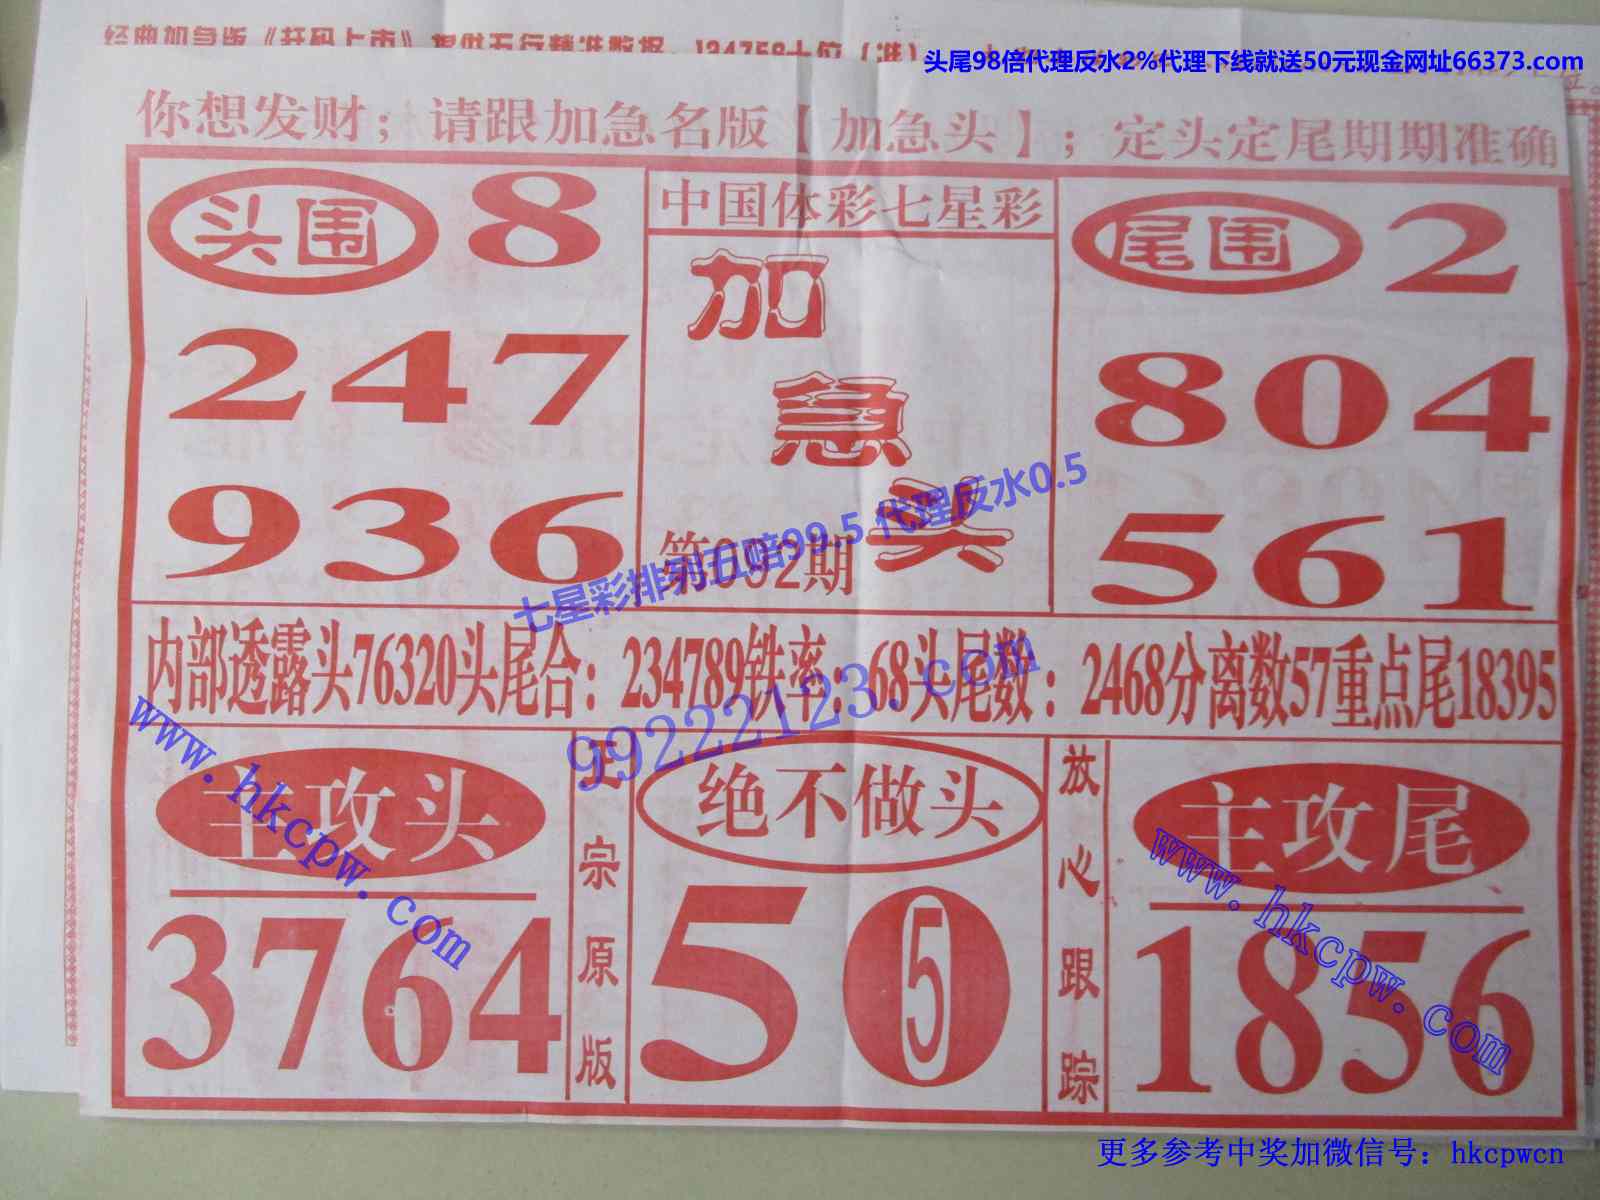 经典加急版《打码上市》提供五行精准数据：134758十位（准）
头尾98倍代理反水2%代理下线就送50元现金网址66373.com
你想发财；请跟加急名版【加急头】；定头定尾期期准确
头围 8
247
936
中国体彩七星彩
加急头
第092期
尾围 2
804
561
七星彩排列五赔99.5 代理反水0.5
内部透露头76320头尾合：234789铁率：68头尾数：2468分离数57重点尾18395
99222123.com
www.hkcpw.com
主攻头
3764
正宗原版
绝不做头
50
5
放心跟踪
主攻尾
1856
www.hkcpw.com
更多参考中奖加微信号：hkcpwcn